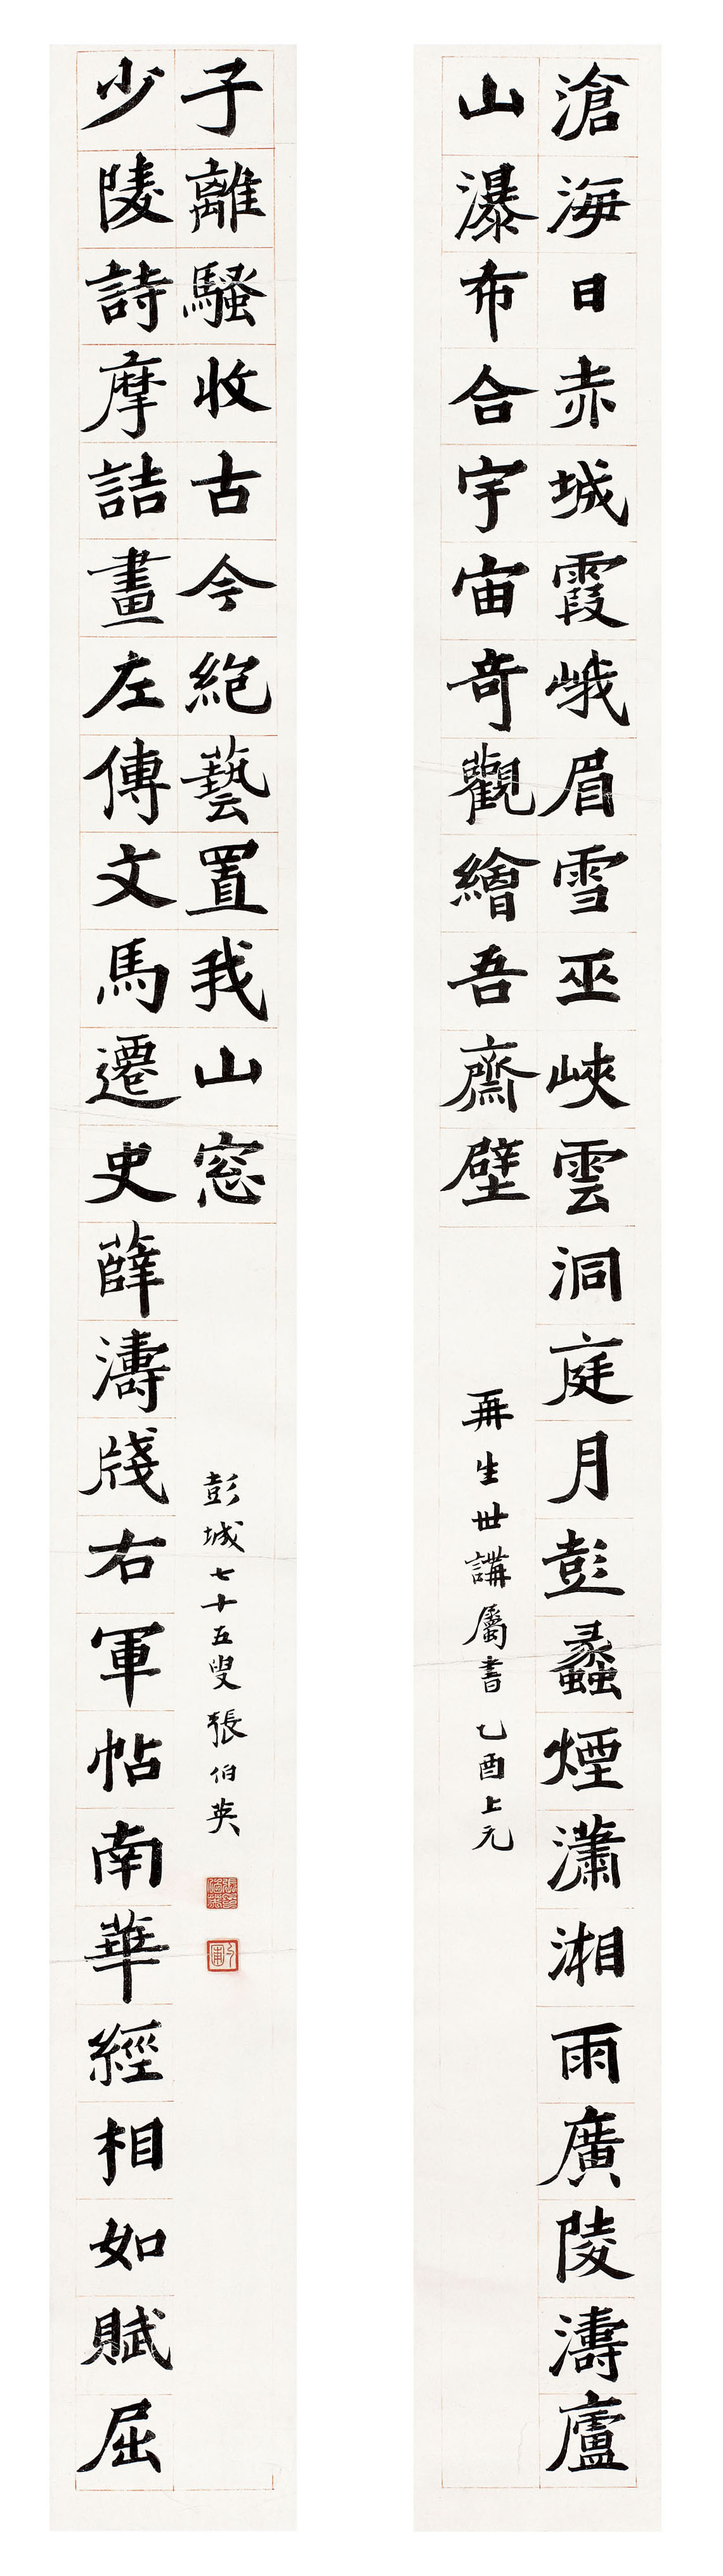 滄海日赤城霞峨眉雪巫峽雲洞庭月彭蠡煙瀟湘雨廣陵濤廬
山瀑布合宇宙奇觀繪吾齋壁
再生世講屬書 乙酉上元
少陵詩摩詰畫左傳文馬遷史薛濤牋右軍帖南華經相如賦屈
子離騷收古今絶藝置我山窓
彭城七十五叟張伯英
勺圃